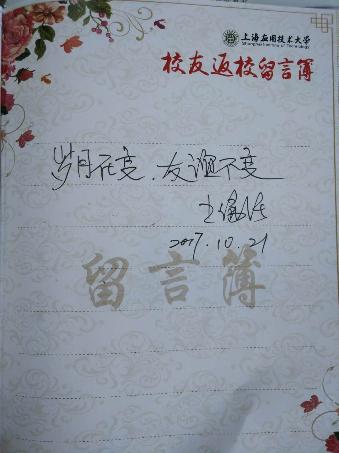 上海应用技术大学
Shanghai Institute of Technology
校友返校留言簿
岁月在变，友谊不变
2017.10.21
留言簿